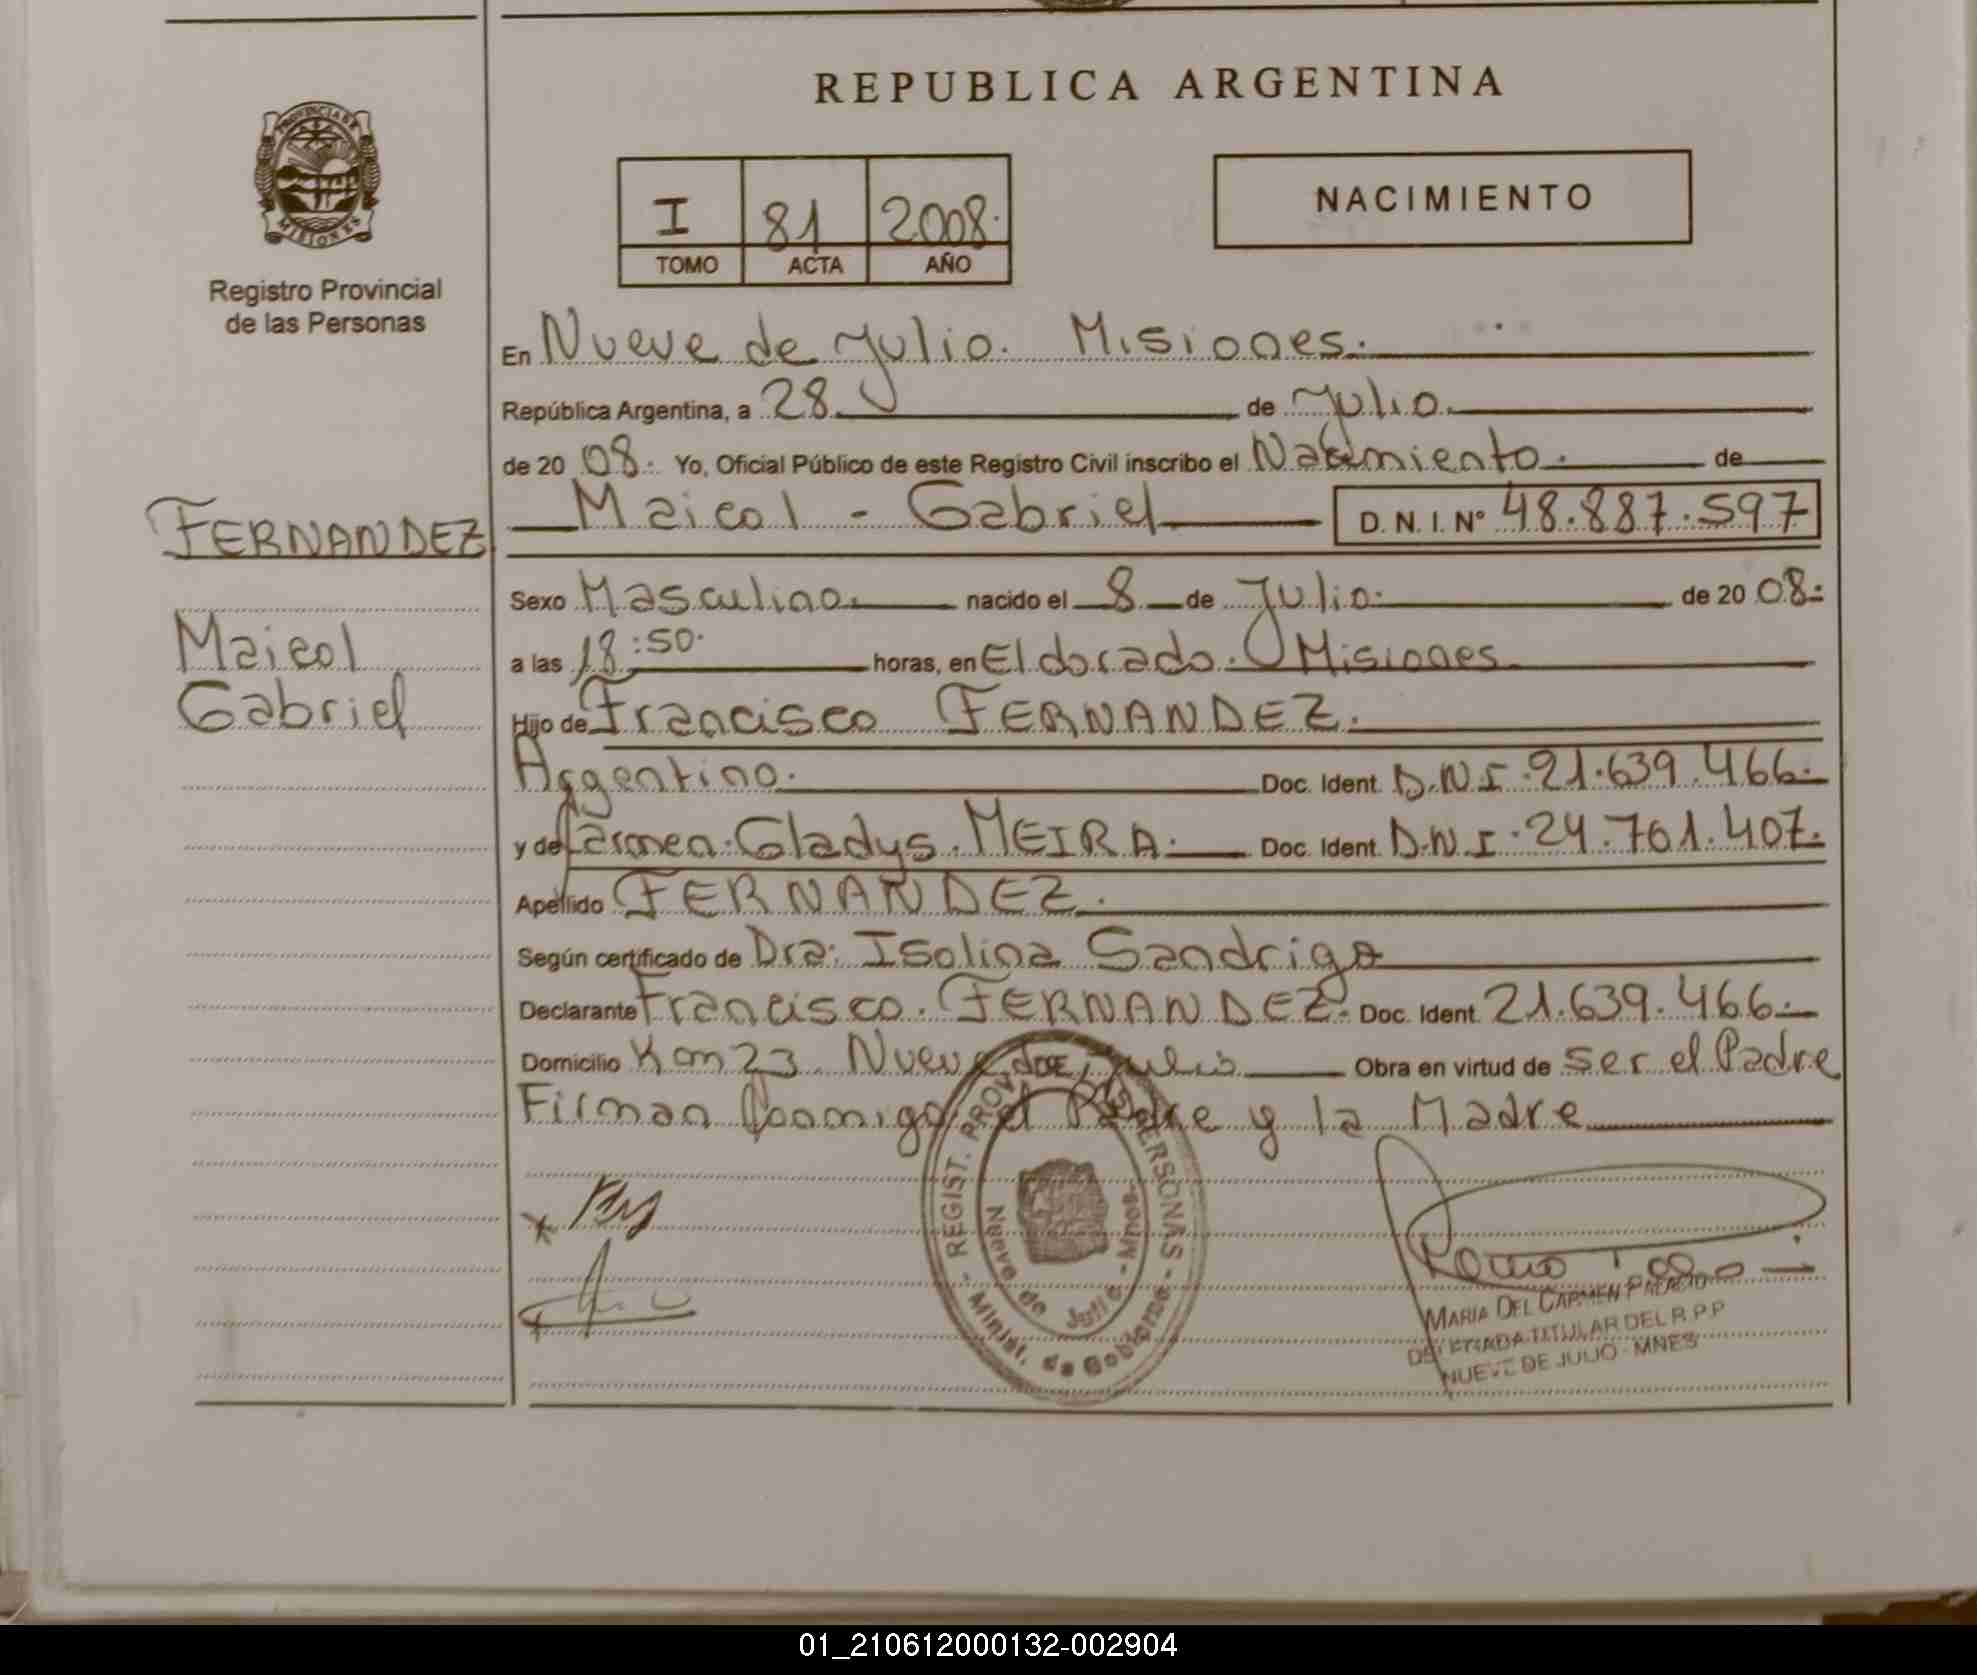 REPUBLICA ARGENTINA
PROVINCIA DE
MISIONES
Registro Provincial
de las Personas
I 81 2008.
TOMO ACTA AÑO
NACIMIENTO
En Nueve de Julio. Misiones.
República Argentina, a 28 de Julio
de 20 08. Yo, Oficial Público de este Registro Civil inscribo el Nacimiento. de
FERNANDEZ
Maicol - Gabriel D.N.I. Nº 48.887.597
Maicol
Gabriel
Sexo Masculino. nacido el 8 de Julio. de 20 08.
a las 18:50. horas, en Eldorado. Misiones
Hijo de Francisco FERNANDEZ.
Argentino. Doc. Ident. D.N.I. 21.639.466.
y de Carmen Gladys MEIRA. Doc. Ident. D.N.I. 24.761.407.
Apellido FERNANDEZ.
Según certificado de Dra. Isolina Sandrigo
Declarante Francisco FERNANDEZ. Doc. Ident. 21.639.466.
Domicilio Km 23 Nueve de Julio Obra en virtud de ser el Padre
Firman Conmigo el Padre y la Madre
REGIST. PROV. DE PERSONAS
Nueve de Julio - Mnes.
Minist. de Gobierno
MARIA DEL CARMEN PALACIO
DELEGADA TITULAR DEL R.P.P
NUEVE DE JULIO - MNES
01_210612000132-002904